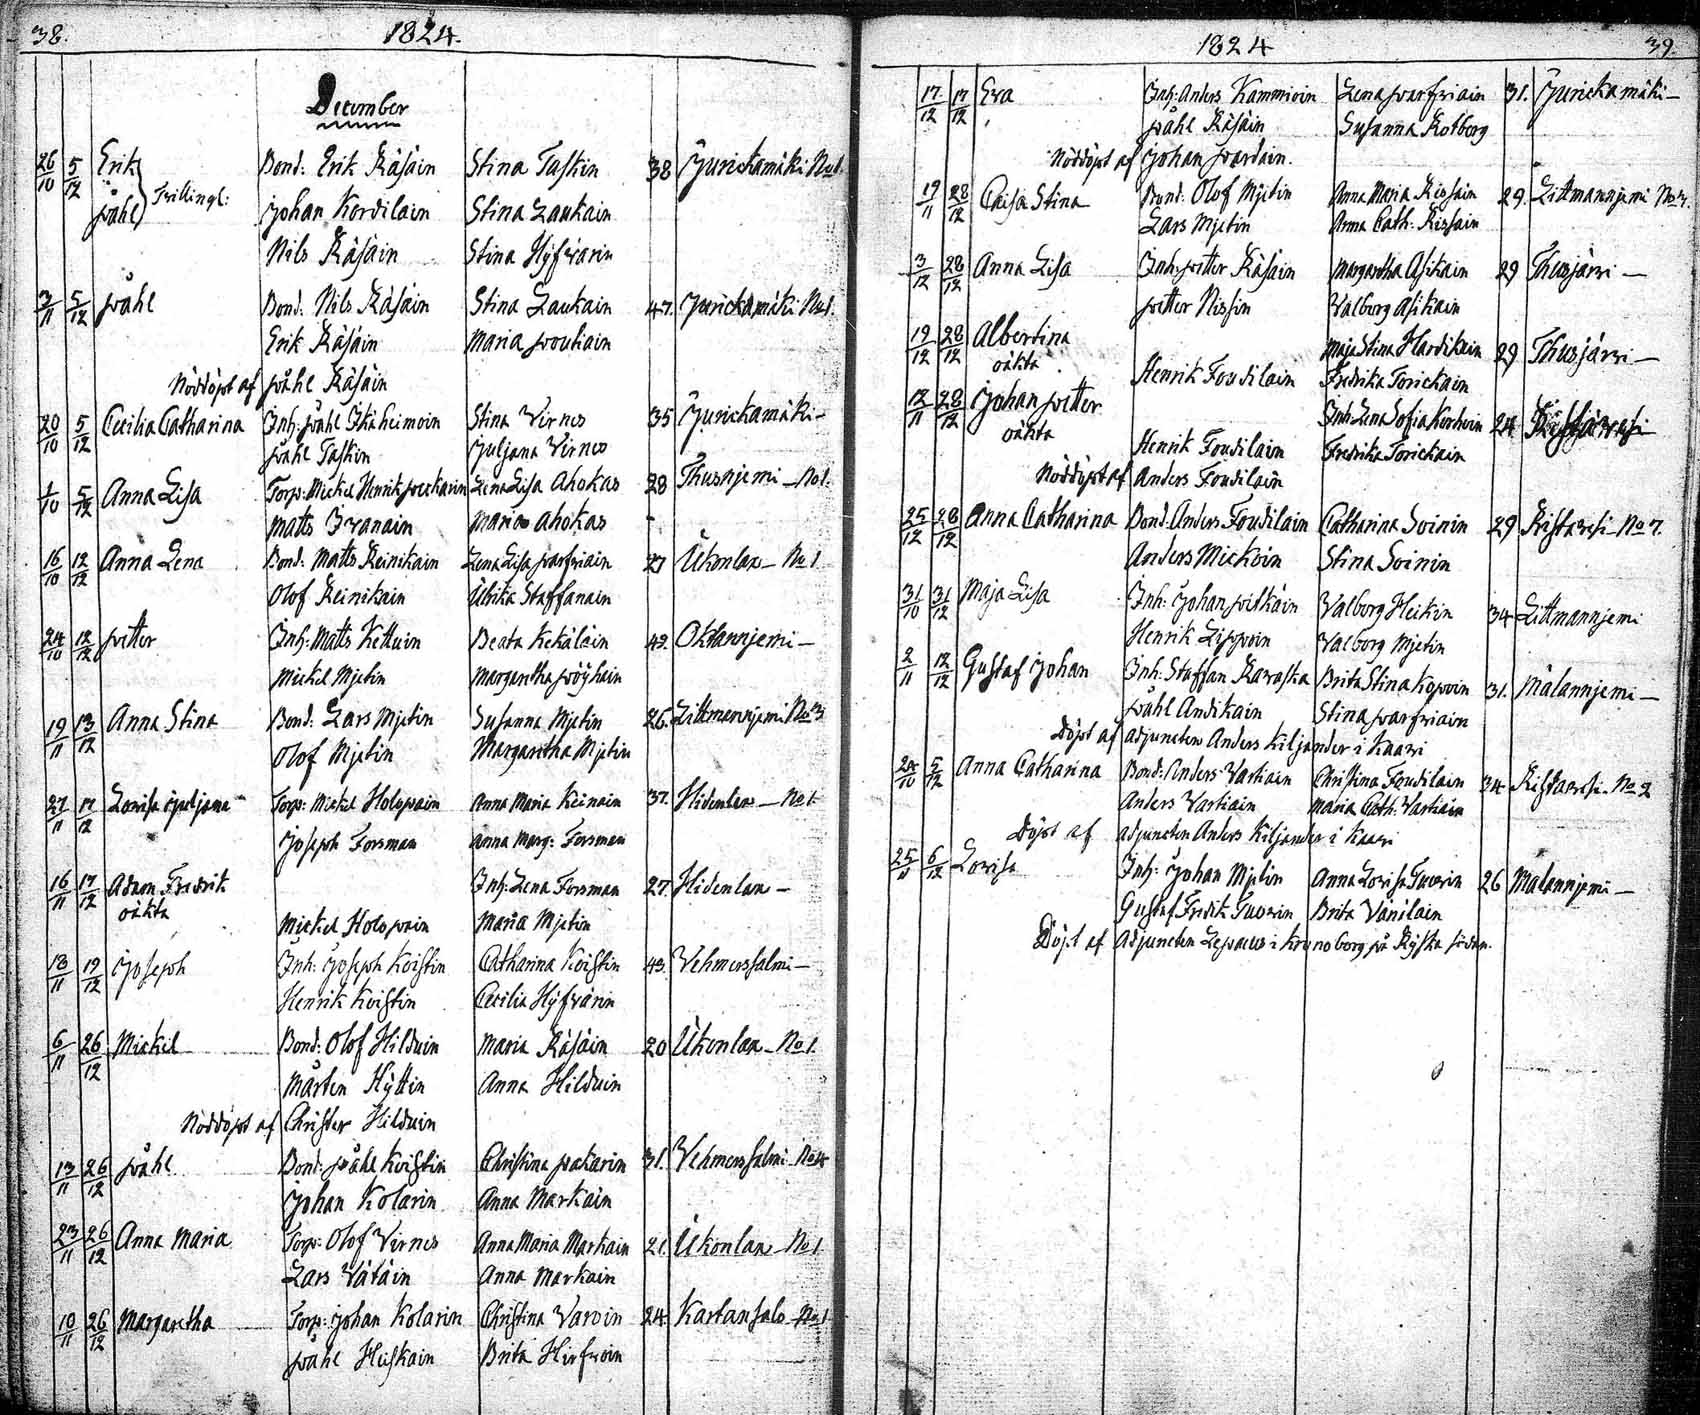 38. 1824.
December
26/10 5/12 Erik Bond: Erik Räsäin Stina Taskin 38 Jurickamäki No 1.
påhl Trillingl: Johan Korvilain Stina Laukain
Nils Räsäin Stina Hyfvärin
7/11 5/12 påhl Bond: Nils Räsäin Stina Laukain 47. Jurickamäki No 1.
Erik Räsäin Maria poutiain
Nöddöpt af påhl Räsäin
20/10 5/12 Cecilia Catharina Inh: påhl Ikäheimoin Stina Virnes 35 Jurickamäki -
påhl Taskin Juljana Virnes
1/10 5/12 Anna Lisa Torp: Mickel Henrik peckarin Lena Lisa Ahokas 28 Thusnjemi - No 1.
Matts Ivanain Maria Ahokas
16/10 12/12 Anna Lena Bond: Matts Reinikain Lena Lisa parfriain 27 Ukonlax - No 1
Olof Reinikain Ulrika Staffanain
24/10 12/12 petter Inh: Matts Kettuin Beata Kekäläin 42. Oktannjemi -
Mickel Mjetin Margaretha pöyhäin
19/11 13/12 Anna Stina Bond: Lars Mjetin Susanna Mjetin 26. Littmannjemi No 3
Olof Mjetin Margaretha Mjetin
27/11 17/12 Lovisa Juljana Torp: Mickel Holopain Anna Maria Keinäin 37. Hidenlax - No 1.
Joseph Forsman Anna Marg: Forsman
16/11 17/12 Adam Fredrik Inh: Lena Forsman 27. Hidenlax -
oäkta Mickel Holopain Maria Mjetin
18/11 19/12 Joseph Inh: Joseph Koistin Catharina Koistin 43. Vehmersalmi -
Henrik Koistin Cecilia Hyfvärin
6/11 26/12 Mickel Bond: Olof Hilduin Maria Räsäin 20 Ukonlax - No 1.
Mårten Hyttin Anna Hilduin
Nöddöpt af Christer Hilduin
13/11 26/12 påhl Bond: påhl Koistin Christina pakarin 31. Vehmersalmi No 4
Johan Kolarin Anna Markain
23/11 26/12 Anna Maria Torp: Olof Virnes Anna Maria Markain 21. Ukonlax - No 1.
Lars Vätäin Anna Markain
10/11 26/12 Margaretha Torp: Johan Kolarin Christina Varoin 24 Kartansalo No 1
påhl Huskain Brita Hirfvoin
1824 39.
17/12 17/12 Eva Inh: Anders Kammioin Lena parfriain 31. Jurickamäki -
påhl Räsäin Susanna Rotborg
Nöddöpt af Johan pardain.
19/11 28/12 Caisa Stina Bond: Olof Mjetin Anna Maria Rissain 29. Littmannjemi No 7.
Lars Mjetin Anna Cath: Rissain
3/12 28/12 Anna Lisa Inh: petter Räsäin Margaretha Asikain 29 Thusjärvi -
petter Nissin Valborg Asikain
19/12 28/12 Albertina Maja Stina Hardikain 29 Thusjärvi -
oäkta Henrik Foudilain Fredrika Torickain
12/11 28/12 Johan petter Inh: Lena Sofia Korhoin 24 Ristavesi
oäkta Henrik Foudilain Fredrika Torickain
Nöddöpt af Anders Foudilain
25/12 28/12 Anna Catharina Bond: Anders Foudilain Catharina Soinin 29 Ristavesi No 7.
Anders Mickoin Stina Soinin
31/10 31/12 Maja Lisa Inh: Johan pitkäin Valborg Heikin 34 Littmannjemi
Henrik Lippoin Valborg Mjetin
2/11 12/12 Gustaf Johan Inh: Staffan Kavaska Brita Stina Kopoin 31. Malannjemi -
påhl Andikain Stina parfriain
Döpt af adjuncten Anders Kiljander i Kaavi
24/10 5/12 Anna Catharina Bond: Anders Vartiain Christina Foudilain 34 Ristavesi No 2
Anders Vartiain Maria Cath: Vartiain
Döpt af adjuncten Anders Kiljander i Kaavi
25/11 6/12 Lovisa Inh: Johan Mjetin Anna Lovisa Tuovin 26 Malannjemi -
Gustaf Fredik Tuovin Brita Vänäläin
Döpt af Adjuncten Lepaeus i Kronoborg på Ryska sidan.